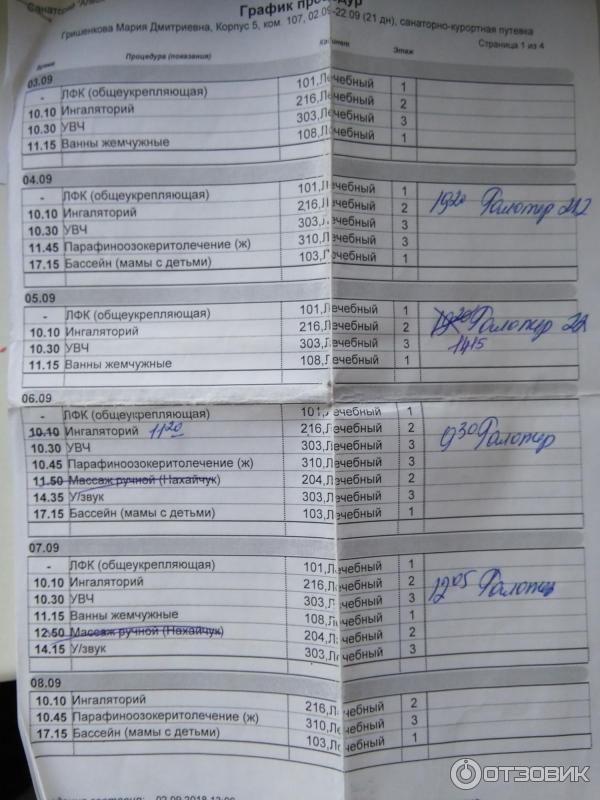 Санаторий "Алмаз
График процедур
Гришенкова Мария Дмитриевна, Корпус 5, ком. 107, 02.09-22.09 (21 дн), санаторно-курортная путевка
Время Процедура (показания) Кабинет Этаж Страница 1 из 4
03.09
- ЛФК (общеукрепляющая) 101,Лечебный 1
10.10 Ингаляторий 216,Лечебный 2
10.30 УВЧ 303,Лечебный 3
11.15 Ванны жемчужные 108,Лечебный 1
04.09
- ЛФК (общеукрепляющая) 101,Лечебный 1
10.10 Ингаляторий 216,Лечебный 2 19 20 Галотер 212
10.30 УВЧ 303,Лечебный 3
11.45 Парафиноозокеритолечение (ж) 310,Лечебный 3
17.15 Бассейн (мамы с детьми) 103,Лечебный 1
05.09
- ЛФК (общеукрепляющая) 101,Лечебный 1
10.10 Ингаляторий 216,Лечебный 2 19 20 Галотер 22
10.30 УВЧ 303,Лечебный 3 14 15
11.15 Ванны жемчужные 108,Лечебный 1
06.09
- ЛФК (общеукрепляющая) 101,Лечебный 1
10.10 Ингаляторий 11 20 216,Лечебный 2 9 30 Галотер
10.30 УВЧ 303,Лечебный 3
10.45 Парафиноозокеритолечение (ж) 310,Лечебный 3
11.50 Массаж ручной (Нахайчук) 204,Лечебный 2
14.35 У/звук 303,Лечебный 3
17.15 Бассейн (мамы с детьми) 103,Лечебный 1
07.09
- ЛФК (общеукрепляющая) 101,Лечебный 1
10.10 Ингаляторий 216,Лечебный 2 12 05 Галотер
10.30 УВЧ 303,Лечебный 3
11.15 Ванны жемчужные 108,Лечебный 1
12.50 Массаж ручной (Нахайчук) 204,Лечебный 2
14.15 У/звук 303,Лечебный 3
08.09
10.10 Ингаляторий 216,Лечебный 2
10.45 Парафиноозокеритолечение (ж) 310,Лечебный 3
17.15 Бассейн (мамы с детьми) 103,Лечебный 1
02.09.2018
ОТЗОВИК